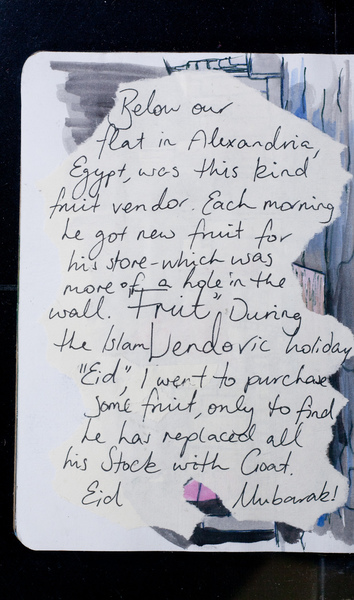 Below our
flat in Alexandria,
Egypt, was this kind
fruit vendor. Each morning
he got new fruit for
his store - which was
more of a hole in the
wall. "Fruit" During
the Islam holiday
"Eid", I went to purchase
some fruit, only to find
he has replaced all
his Stock with Goat.
Eid Mubarak!